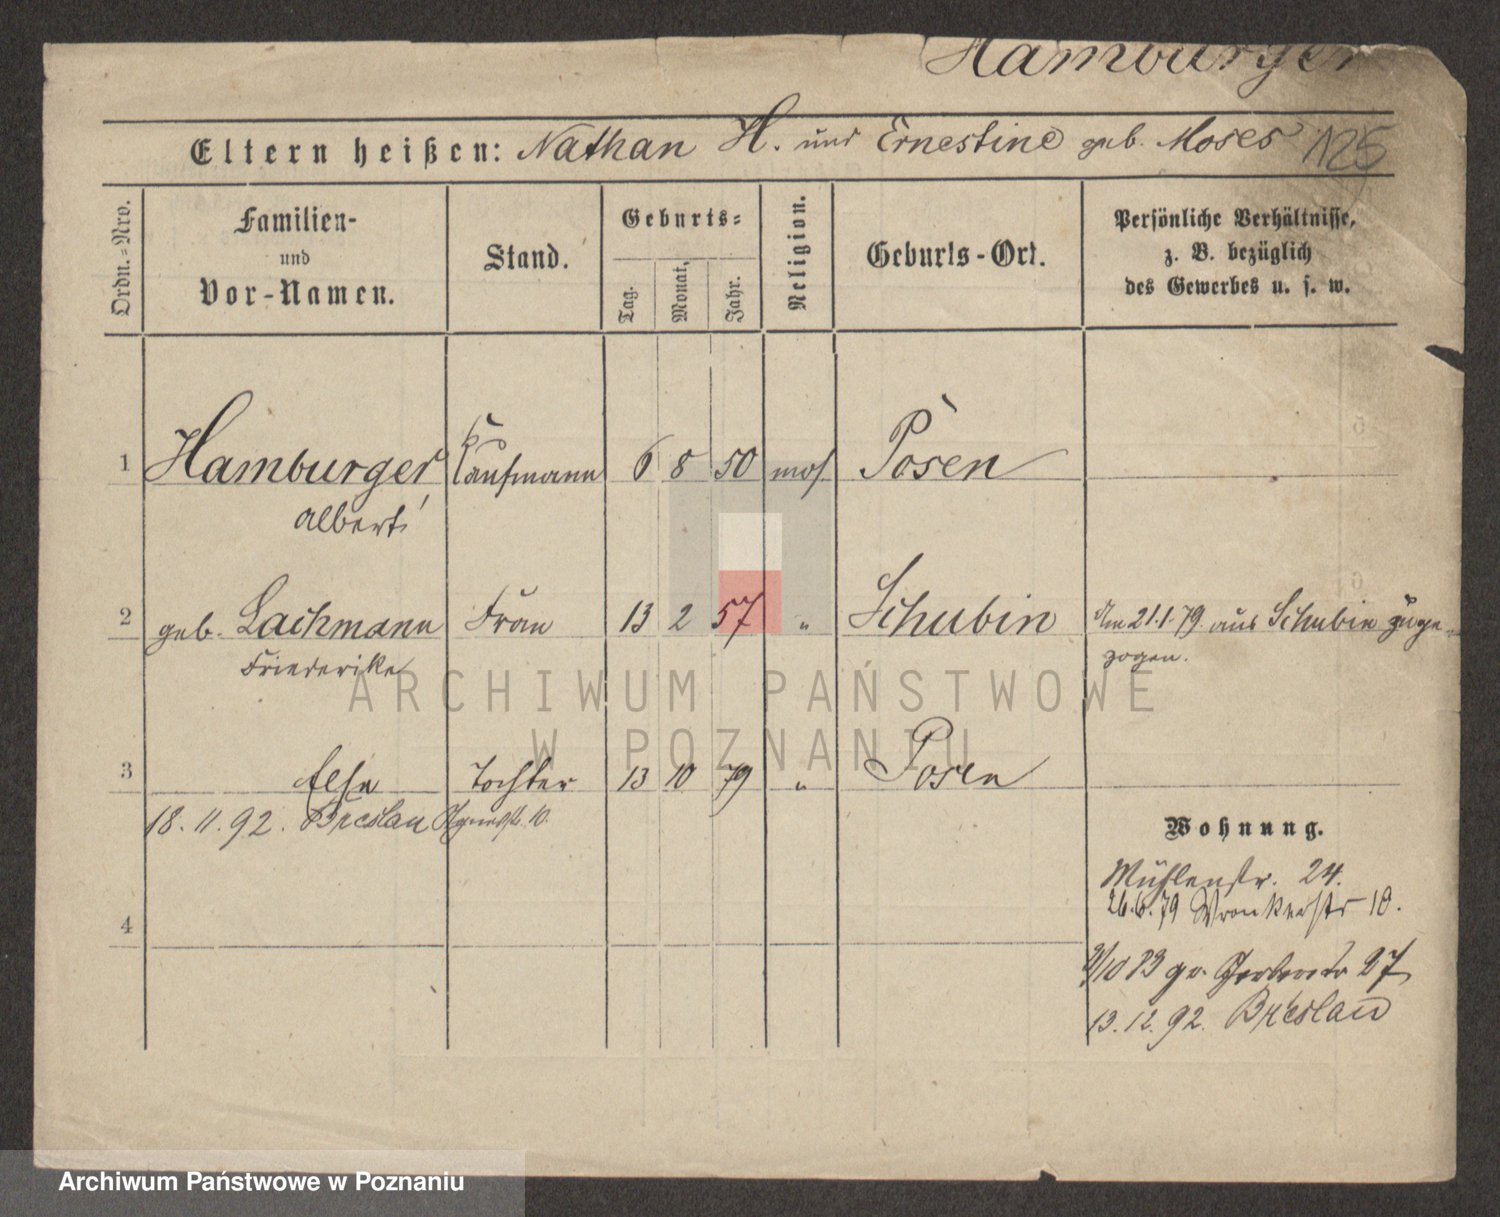 Hamburger
Eltern heißen: Nathan H. und Ernestine geb. Moses 125
Ordn.-Nro.
Familien-
und
Vor-Namen.
Stand.
Geburts-
Tag.
Monat,
Jahr.
Religion.
Geburts-Ort.
Persönliche Verhältnisse,
z. B. bezüglich
des Gewerbes u. s. w.
1 Hamburger Kaufmann 6 8 50 mos. Posen
Albert
2 geb. Lachmann Frau 13 2 57 " Schubin Am 21.1.79 aus Schubin zuge-
Friederike zogen.
ARCHIWUM PAŃSTWOWE
W POZNANIU
3 Else Tochter 13 10 79 " Posen
18. 11. 92. Breslau Agnesstr. 10.
Wohnung.
Mühlenstr. 24.
26.6.79 Wronkerstr 10.
4
2/10 83 gr. Gerberstr 27
13. 12. 92. Breslau
Archiwum Państwowe w Poznaniu